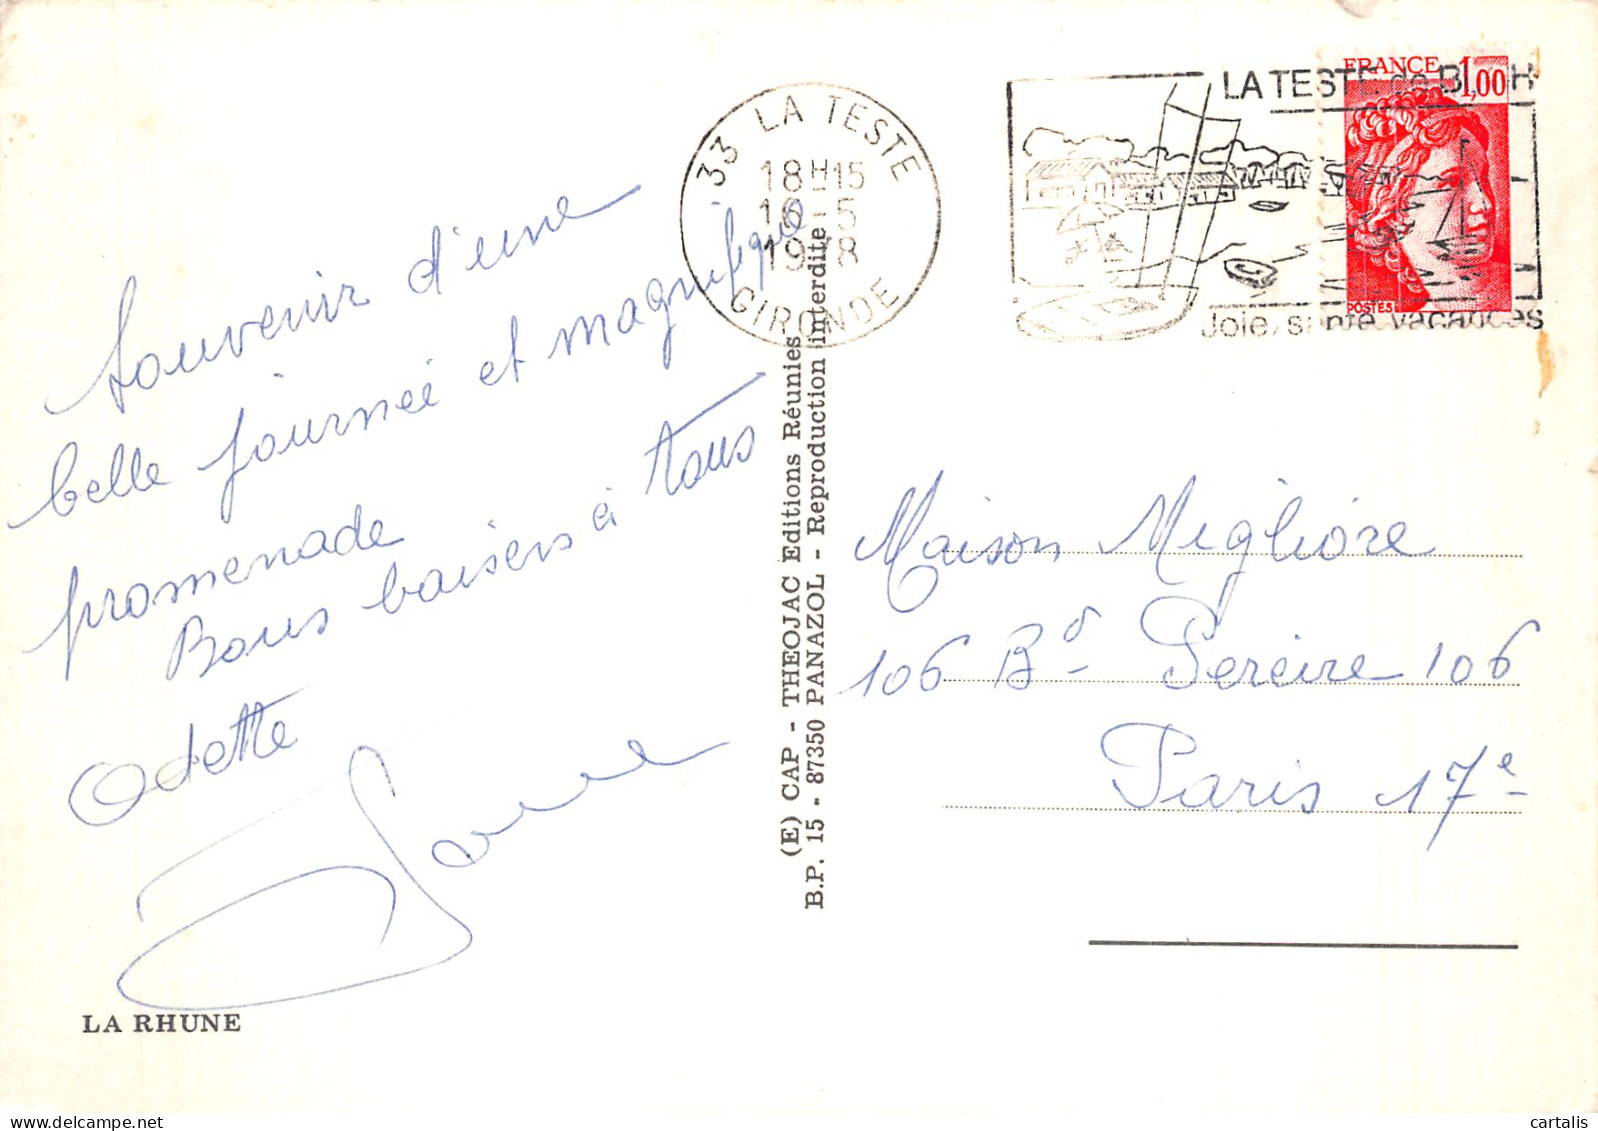 Souvenir d'une
belle journée et magnifique
promenade
Bons baisers à tous
Odette
LA RHUNE
(E) CAP - THEOJAC Editions Réunies
B.P. 15 - 87350 PANAZOL - Reproduction interdite
33 LA TESTE
18H-15
16-5
1978
GIRONDE
LA TESTE de BUCH
Joie, santé, vacances
FRANCE 1,00
POSTES
Maison Migliore
106 Bd Pereire 106
Paris 17e
cartalis